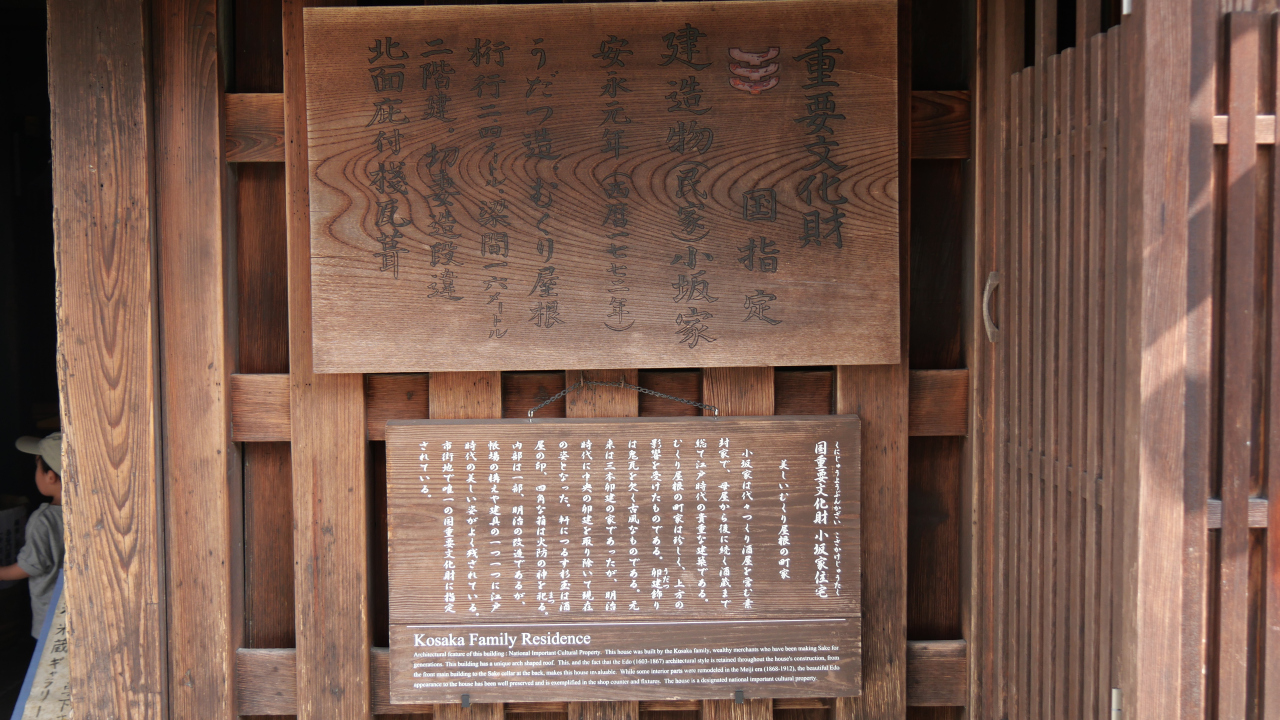 重要文化財
国指定
建造物(民家)小坂家
安永元年(西暦一七七二年)
うだつ造 むくり屋根
桁行一二四メートル 梁間一六メートル
二階建、切妻造段違
北面庇付棧瓦葺
くにじゅうようぶんかざい こさかけじゅうたく
国重要文化財 小坂家住宅
美しいむくり屋根の町家
小坂家は代々つくり酒屋を営む素
封家で、母屋から後に続く酒蔵まで
総て江戸時代の貴重な建築である。
むくり屋根の町家は珍しく、上方の
影響を受けたものである。卯建飾り
うだつ
は鬼瓦を欠く古風なものである。元
来は三本卯建の家であったが、明治
時代に中央の卯建を取り除いて現在
の姿となった。軒につるす杉玉は酒
屋の印、四角な箱は火防の神を祀る。
まつ
内部は一部、明治の改造であるが、
帳場の構えや建具の一つ一つに江戸
時代の美しい姿がよく残されている。
市街地で唯一の国重要文化財に指定
されている。
Kosaka Family Residence
Architectural feature of this building : National Important Cultural Property. This house was built by the Kosaka family, wealthy merchants who have been making Sake for
generations. This building has a unique arch shaped roof. This, and the fact that the Edo (1603-1867) architectural style is retained throughout the house's construction, from
the front main building to the Sake cellar at the back, makes this house invaluable. While some interior parts were remodeled in the Meiji era (1868-1912), the beautiful Edo
appearance to the house has been well preserved and is exemplified in the shop counter and fixtures. The house is a designated national important cultural property.
米蔵ギャラリー